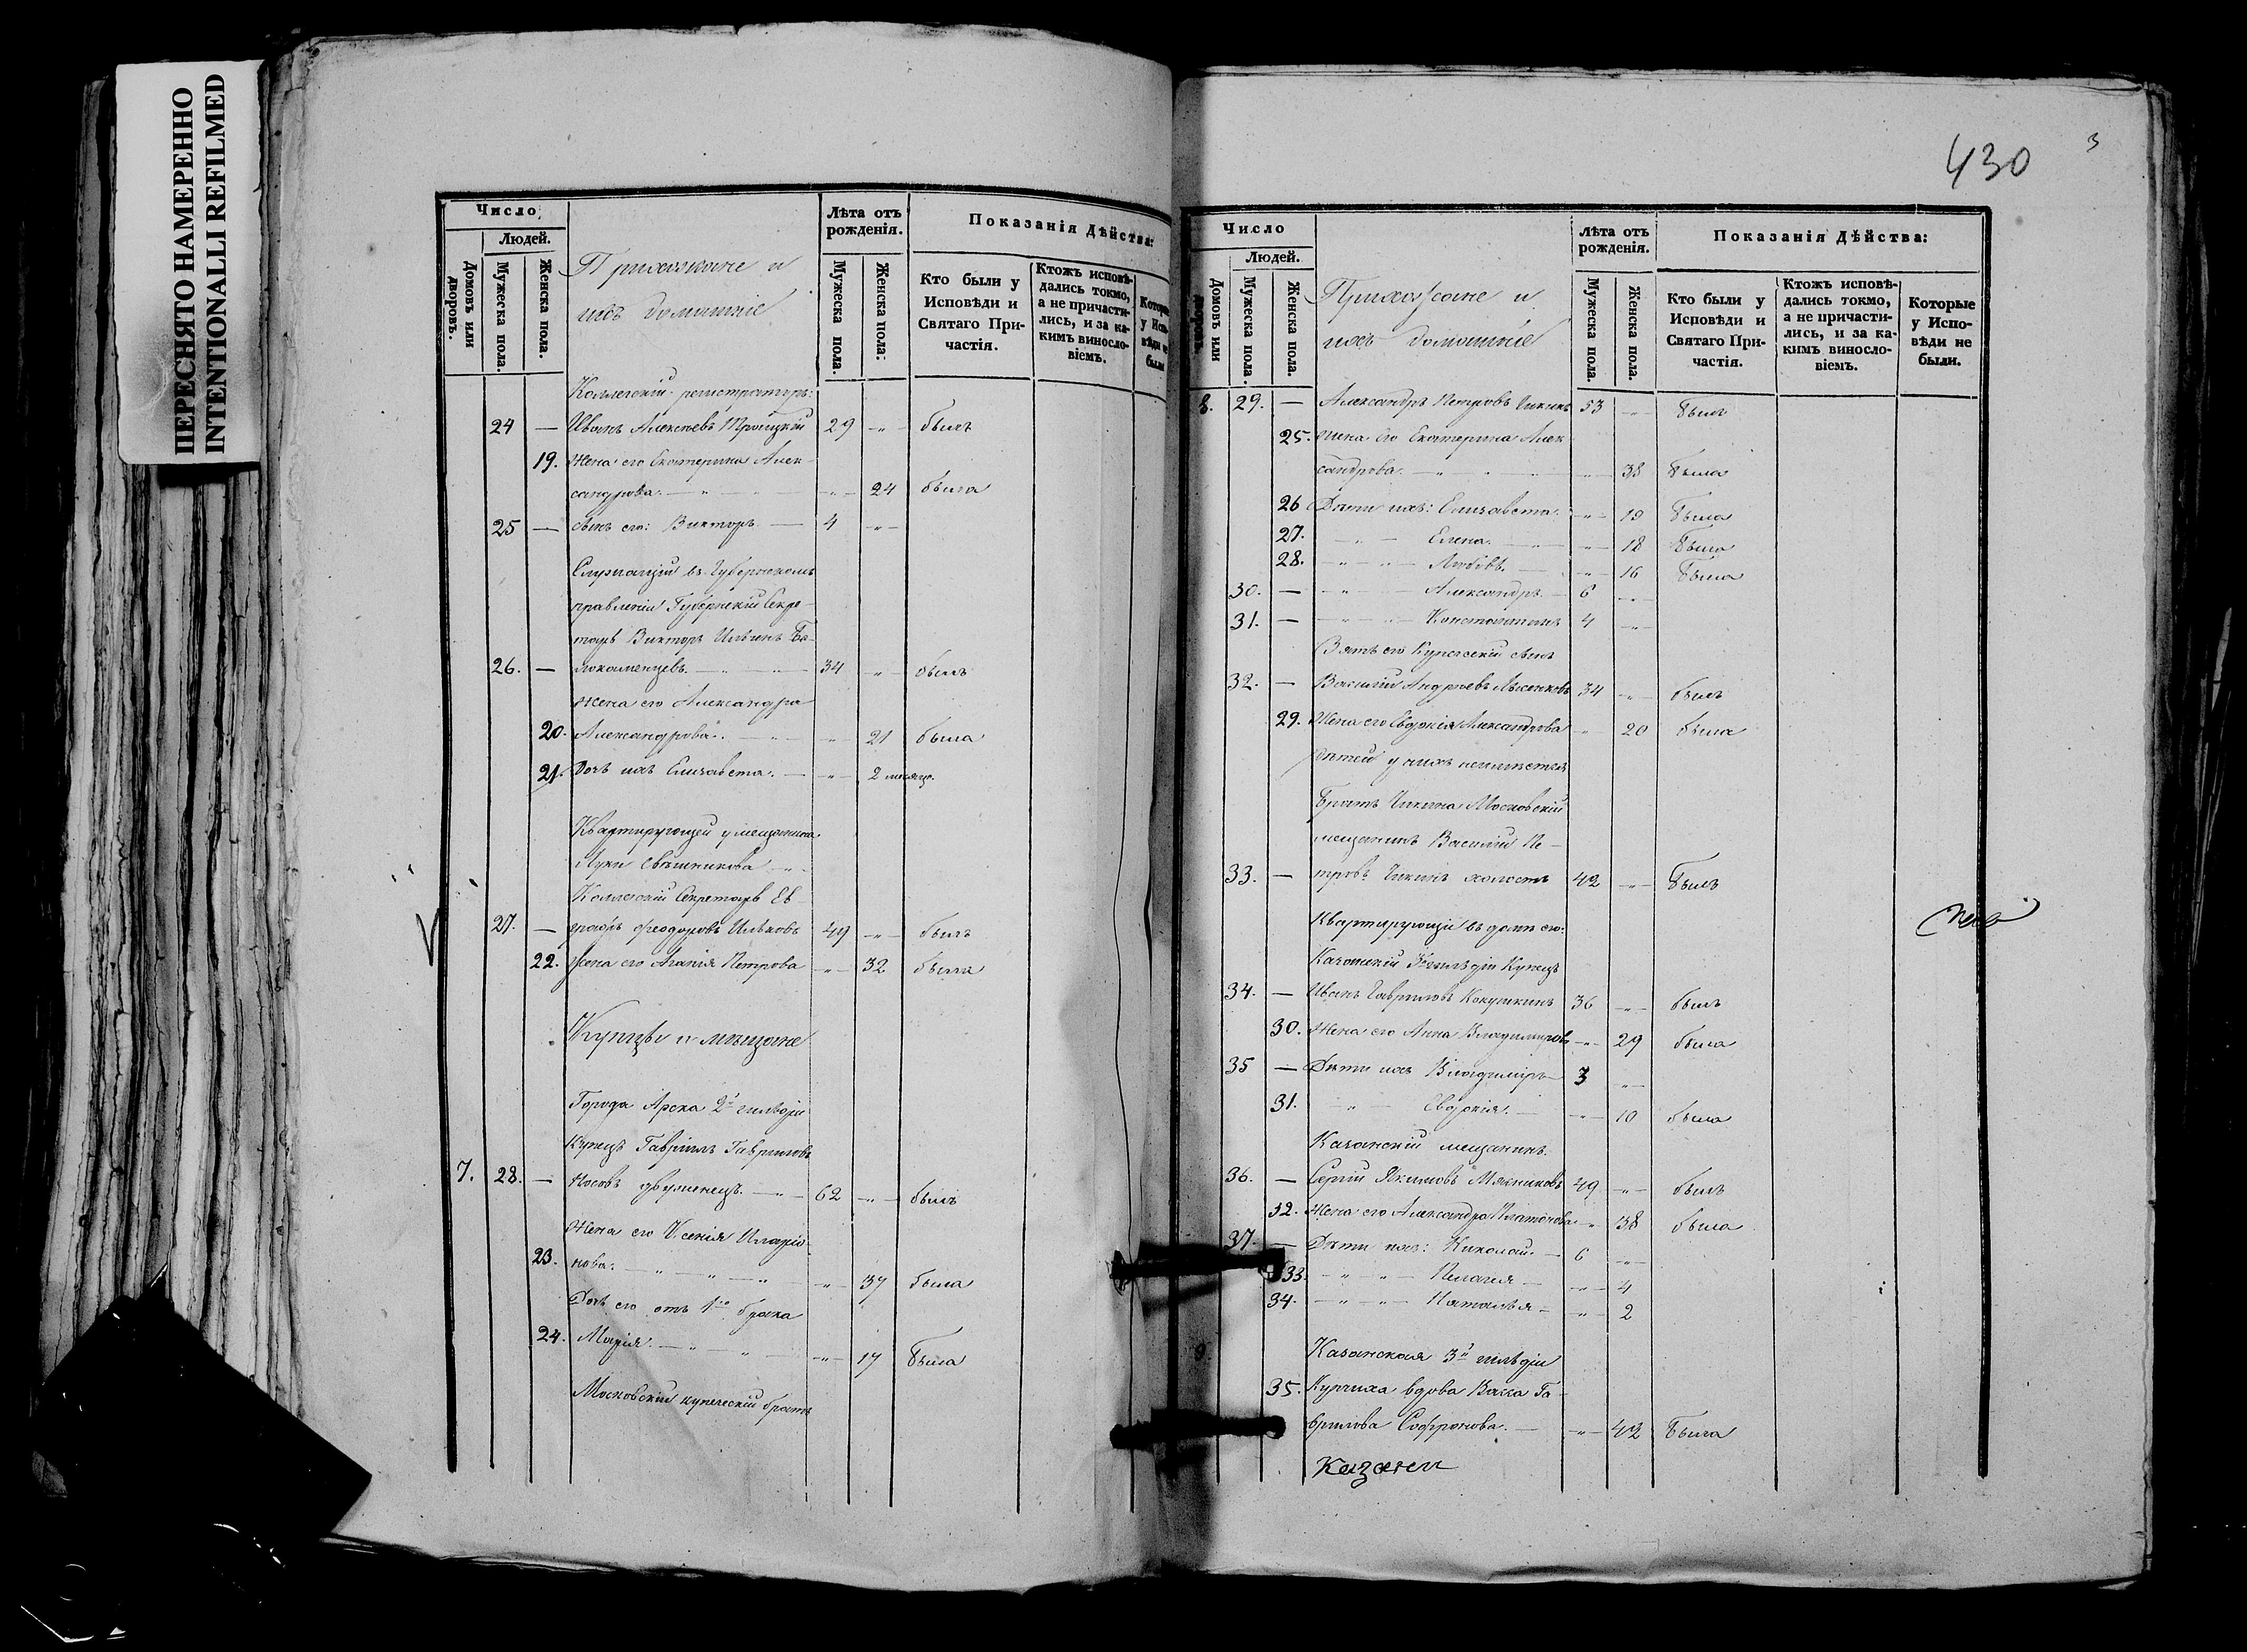 ПЕРЕСНЯТО НАМЕРЕННО
INTENTIONALLI REFILMED
Число
Людей.
Домовъ или дворовъ.
Мужеска пола.
Женска пола.
Прихожане и
ихъ домашніе
Лѣта отъ рожденія.
Мужеска пола.
Женска пола.
Показанія Дѣйства:
Кто были у Исповѣди и Святаго Причастія.
Ктожъ исповѣдались токмо, а не причастились, и за какимъ винословіемъ.
Коллежскій регистраторъ:
24 — Иванъ Алексѣевъ Троицкій 29 -"- былъ
19. Жена его Екатерина Алек-
сандрова. — " — " -"- 24 была
25 — сынъ его: Викторъ — 4 -"-
Служащій въ Губернскомъ
правленіи Губернскій Секре-
тарь Викторъ Ильинъ Бѣ-
26. — локаменцевъ. — " — 34 -"- былъ
Жена его Александра
20. Александрова. — " 21 была
21. Дочь ихъ Елизавета. — -"- 2 месяца.
Квартирующей у мещанина
Луки Свѣшникова -"-
Коллежскій Секретарь Ев-
27. — графъ Феодоровъ Ильковъ 49 -"- былъ
22. Жена его Агапія Петрова -"- 32 была
Купцы и мѣщане
Города Арска 2й гильдіи
купецъ Гавріилъ Гавриловъ
7. 28. — Носовъ двуженецъ. — " — 62 -"- былъ
Жена его Ксенія Иларіо-
23. нова. — " — " — " -"- 37 была
Дочь его отъ 1го брака
24. Марія. — " — " -"- 17 была
Московскій купеческій братъ
430
3
Число
Людей.
Домовъ или дворовъ.
Мужеска пола.
Женска пола.
Прихожане и
ихъ домашніе
Лѣта отъ рожденія.
Мужеска пола.
Женска пола.
Показанія Дѣйства:
Кто были у Исповѣди и Святаго Причастія.
Ктожъ исповѣдались токмо, а не причастились, и за какимъ винословіемъ.
Которые у Исповѣди не были.
8. 29. — Александръ Петровъ Чикинъ 53 -"- былъ
25. жена его Екатерина Алек
сандрова. — " — " — " 38 была
26 Дѣти ихъ: Елизавета. -"- 19 была
27. -"- Елена. — " -"- 18 была
28. -"- -"- Любовь. — -"- 16 была
30. — -"- Александръ. — 6 -"-
31. — -"- -"- Константинъ 4 -"-
Зять его Купеческій сынъ
32. — Василій Андреевъ Лысенковъ 34 -"- былъ
29. Жена его Евдокія Александрова " 20 была
дѣтей у нихъ неимѣется
Братъ Чикина Московскій
мещанинъ Василій Пе-
33. — тровъ Чикинъ холостъ 42 -"- былъ
Квартирующіи въ домѣ его:
Казанскій 3й гильдіи Купецъ
34. — Иванъ Гавриловъ Кокушкинъ 36 -"- былъ
30. Жена его Анна Владимирова -"- 29 была
35 — Дѣти ихъ Владиміръ 3 -"-
31. -"- Евдокія. — -"- 10 была
Казанскій мещанинъ.
36. — Сергій Якимовъ Мясниковъ 49 -"- былъ
32. Жена его Александра Платонова -"- 38 была
37. — Дѣти ихъ: Николай. — 6 -"-
33. -"- -"- Пелагея — -"- 4
34. -"- -"- Наталья — -"- 2
9. Казанская 3й гильдіи
35. Купчиха вдова Васса Га-
врилова Софронова. — -"- 42 была
Казанси